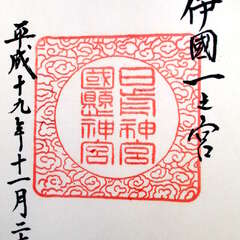 伊國一之宮
日前神宮
國懸神宮
平成十九年十一月二